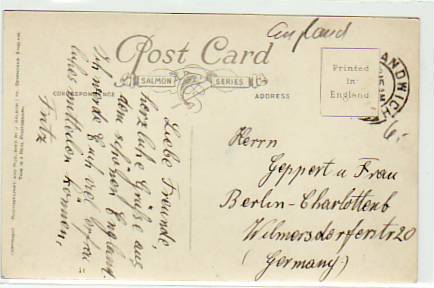 England
Post Card
SALMON SERIES
CORRESPONDENCE
ADDRESS
Printed
in
England
ANDWICH
Liebe Freunde,
herzliche Grüße aus
dem schönen England.
Ich werde Euch viel
können.
Fritz
Herrn
Geppert u Frau
Berlin-Charlottenb
Wilmersdorferstr 20
(Germany)